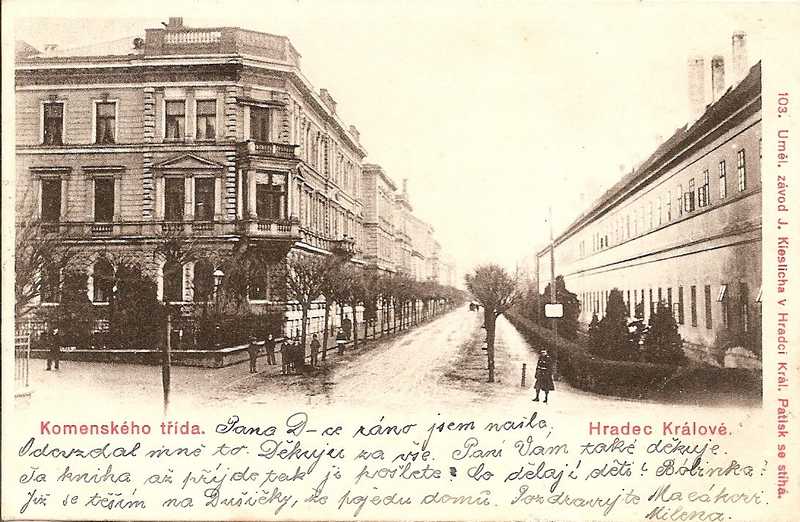 Komenského třída.
Hradec Králové.
Pana D-ce ráno jsem našla.
Odevzdal mně to. Děkuju za vše. Paní Vám také děkuje.
Ta kniha až přijde tak je pošlete? Co dělají děti? Bólinka?
Již se těším na Dušičky, že pojedu domů. Pozdravujte
Milena.
103. Uměl. závod J. Kieslicha v Hradci Král. Patisk se stíhá.